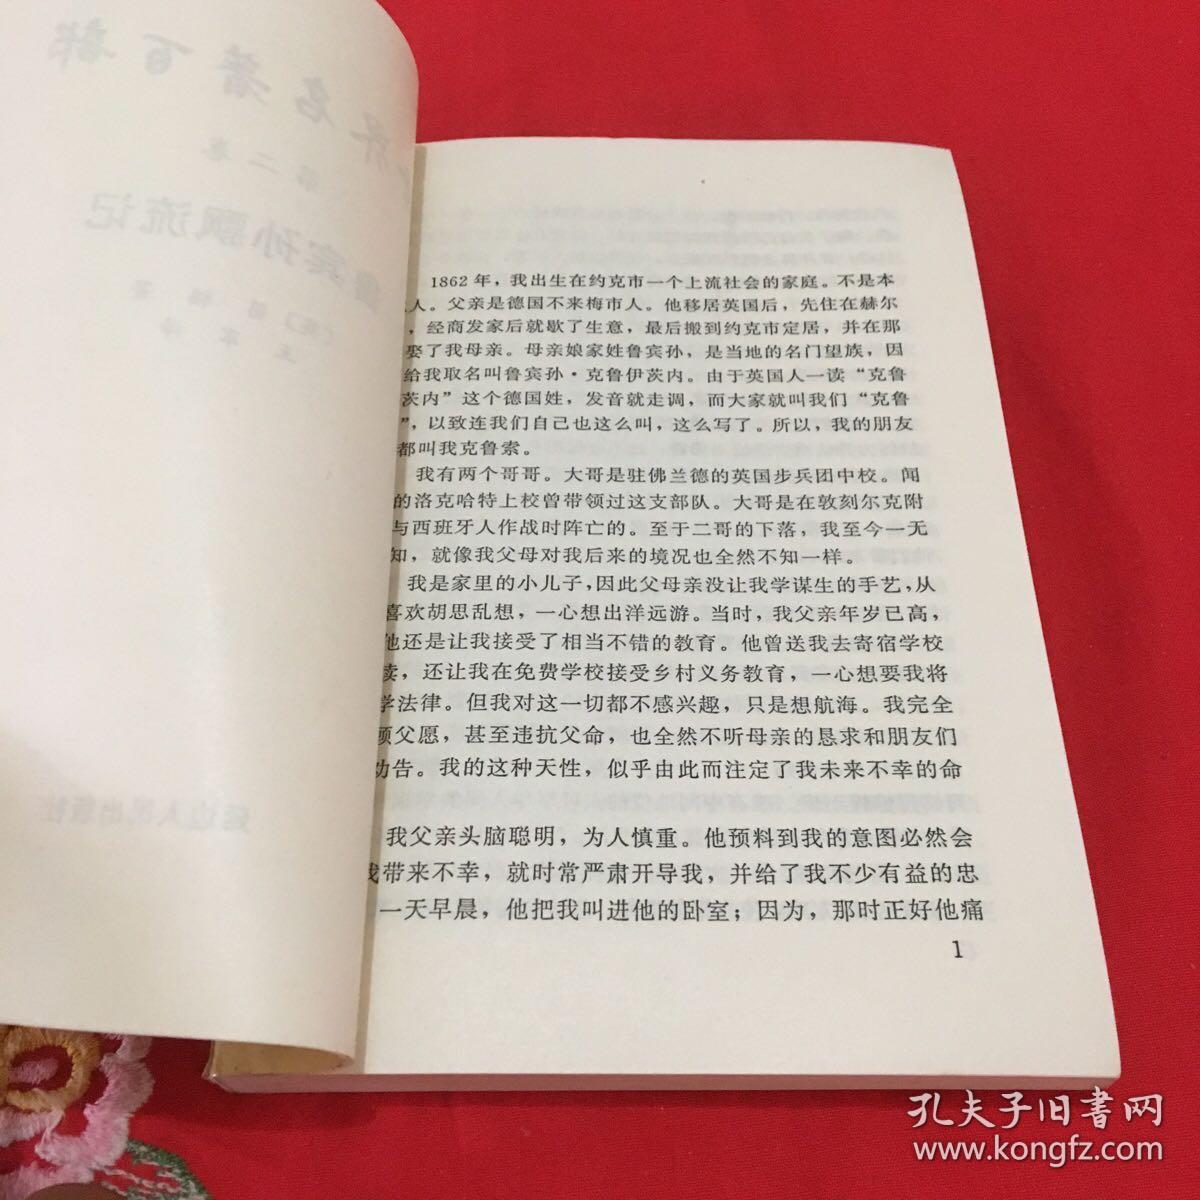 名著百部
第二卷
宾孙飘流记
延边人民出版社
1862年，我出生在约克市一个上流社会的家庭。不是本
人。父亲是德国不来梅市人。他移居英国后，先住在赫尔
，经商发家后就歇了生意，最后搬到约克市定居，并在那
娶了我母亲。母亲娘家姓鲁宾孙，是当地的名门望族，因
给我取名叫鲁宾孙·克鲁伊茨内。由于英国人一读“克鲁
茨内”这个德国姓，发音就走调，而大家就叫我们“克鲁
”，以致连我们自己也这么叫，这么写了。所以，我的朋友
都叫我克鲁索。
我有两个哥哥。大哥是驻佛兰德的英国步兵团中校。闻
的洛克哈特上校曾带领过这支部队。大哥是在敦刻尔克附
与西班牙人作战时阵亡的。至于二哥的下落，我至今一无
知，就像我父母对我后来的境况也全然不知一样。
我是家里的小儿子，因此父母亲没让我学谋生的手艺，从
喜欢胡思乱想，一心想出洋远游。当时，我父亲年岁已高，
他还是让我接受了相当不错的教育。他曾送我去寄宿学校
读，还让我在免费学校接受乡村义务教育，一心想要我将
学法律。但我对这一切都不感兴趣，只是想航海。我完全
顾父愿，甚至违抗父命，也全然不听母亲的恳求和朋友们
劝告。我的这种天性，似乎由此而注定了我未来不幸的命
我父亲头脑聪明，为人慎重。他预料到我的意图必然会
我带来不幸，就时常严肃开导我，并给了我不少有益的忠
一天早晨，他把我叫进他的卧室；因为，那时正好他痛
1
孔夫子旧书网
www.kongfz.com